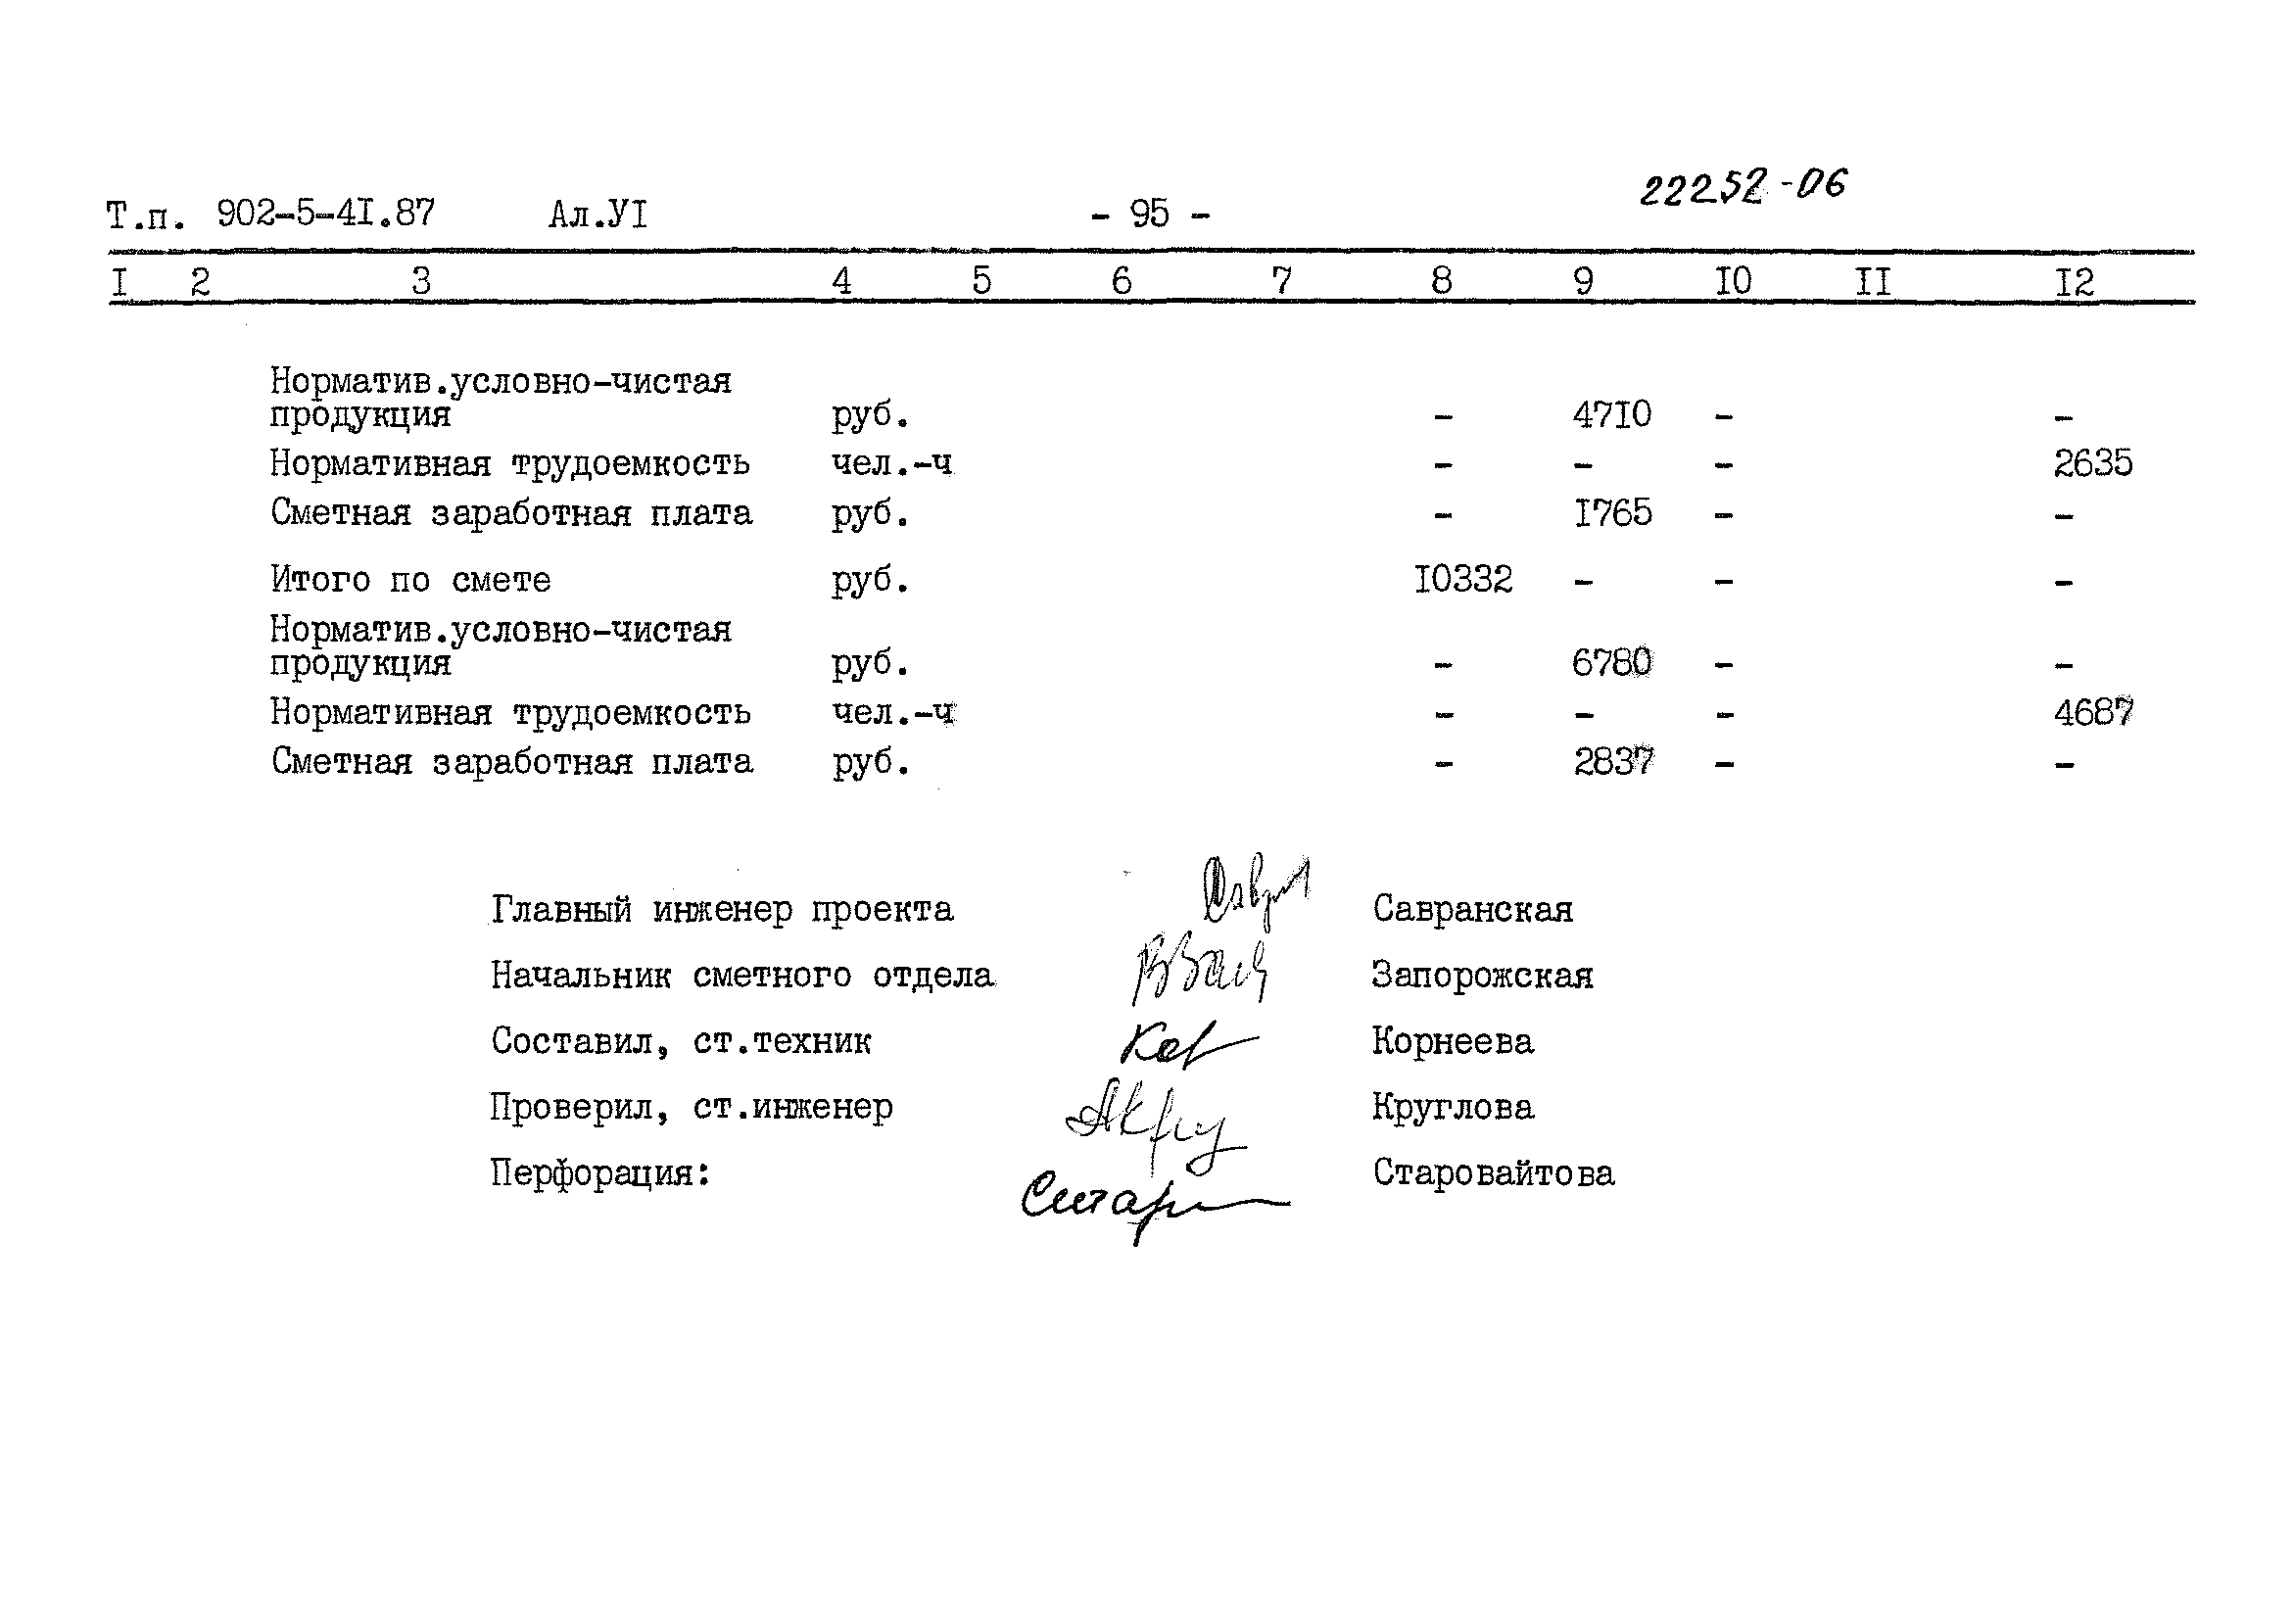 22252-06
Т.п. 902-5-4I.87 Ал.УI - 95 -
I 2 3 4 5 6 7 8 9 I0 II I2
Норматив.условно-чистая
продукция руб. - 47I0 - -
Нормативная трудоемкость чел.-ч - - - 2635
Сметная заработная плата руб. - I765 - -
Итого по смете руб. I0332 - - -
Норматив.условно-чистая
продукция руб. - 6780 - -
Нормативная трудоемкость чел.-ч - - - 4687
Сметная заработная плата руб. - 2837 - -
Главный инженер проекта Савранская
Начальник сметного отдела Запорожская
Составил, ст.техник Корнеева
Проверил, ст.инженер Круглова
Перфорация: Старовайтова